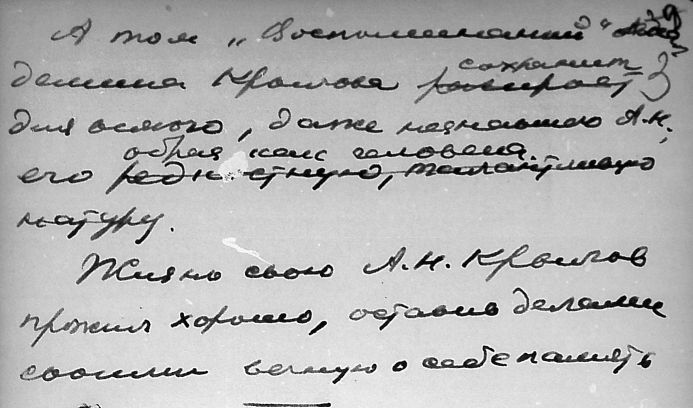 А том „Воспоминаний" Ака
демика Крылова сохранит
для всякого, даже незнавшего А.Н.,
образ как человека.
его редкостную, талантливую
натуру.
Жизнь свою А.Н. Крылов
прожил хорошо, оставив делами
своими вечную о себе память